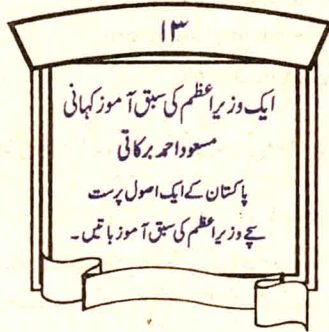 ۱۳
ایک وزیراعظم کی سبق آموز کہانی
مسعود احمد برکاتی
پاکستان کے ایک اصول پرست
سچے وزیراعظم کی سبق آموز باتیں۔